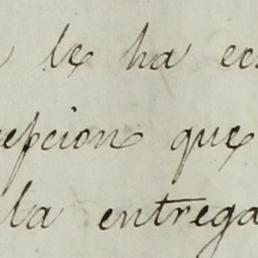 le ha
epcion que
la entrega